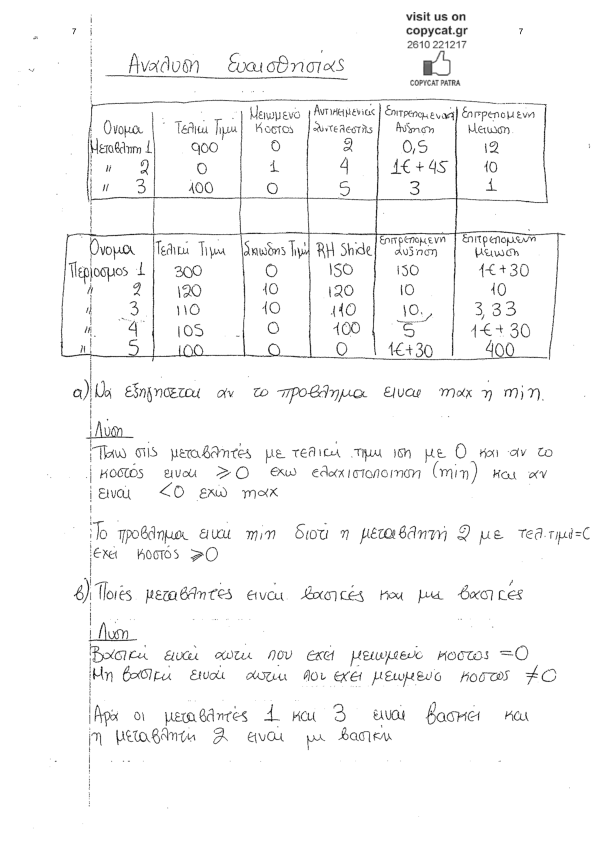 visit us on
copycat.gr
2610 221217
COPYCAT PATRA
7 7
Αναλυση Ευαισθησίας
Ονομα Τελική Τιμή Μειωμένο Κοστος Αντικειμενικός Συντελεστής Επιτρεπομενη Αυξηση Επιτρεπομενη Μειωση
Μεταβλητη 1 900 0 2 0,5 12
" 2 0 1 4 1€+45 10
" 3 100 0 5 3 1
Ονομα Τελικη Τιμη Σκιωδης Τιμή RH Shide Επιτρεπομενη αυξηση Επιτρεπομενη μειωση
Περιοσμος 1 300 0 150 150 1€+30
" 2 120 10 120 10 10
" 3 110 10 110 10. 3,33
" 4 105 0 100 5 1€+30
" 5 100 0 0 1€+30 400
α) Να εξηγησεται αν το προβλημα ειναι max ή min.
Λυση
Παω στις μεταβλητές με τελική τιμη ιση με 0 και αν το
κοστός ειναι ⩾0 εχω ελαχιστοποιηση (min) και αν
ειναι <0 εχω max
Το προβλημα ειναι min διοτι η μεταβλητή 2 με τελ.τιμή=0
εχει κοστός ⩾0
β) Ποιές μεταβλητές ειναι βασικές και μη βασικές
Λυση
Βασική ειναι αυτη που εχει μειωμενο κοστος =0
Μη βασικη ειναι αυτη που εχει μειωμενο κοστος ≠0
Αρα οι μεταβλητές 1 και 3 ειναι βασικεί και
η μεταβλητη 2 ειναι μη βασικη